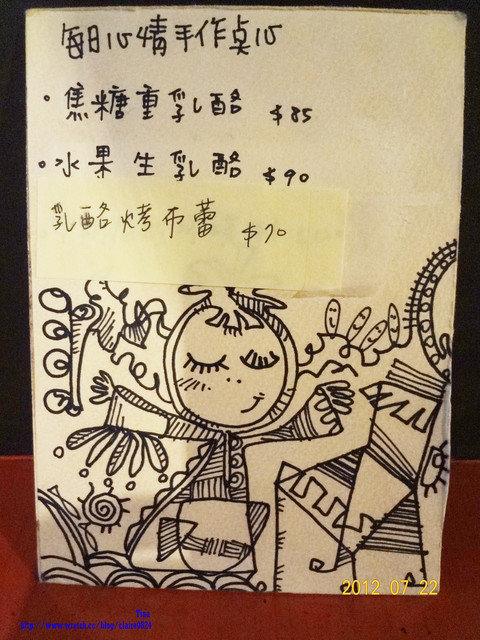 每日心情手作桌心
• 焦糖重乳酪 $85
• 水果生乳酪 $90
乳酪烤布蕾 $70
2012 07 22